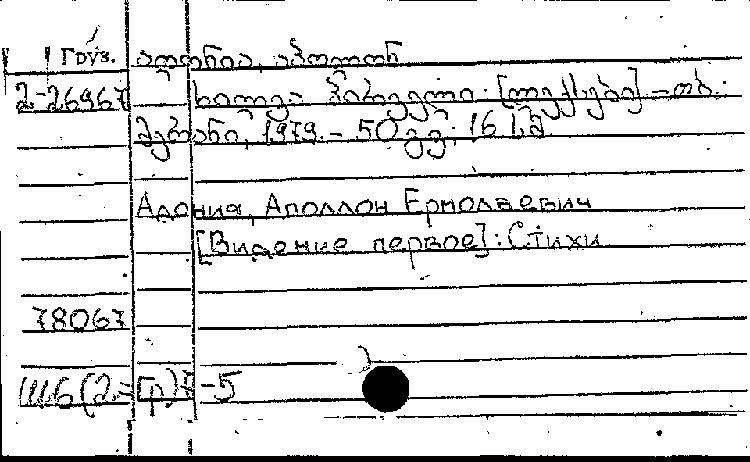 Груз. ადონია, აპოლონ
2-26967 ხილვა პირველი: [ლექსები] – თბ.:
მერანი, 1979. – 50 გვ; 16 სმ
Адония, Аполлон Ермолаевич
[Видение первое]: Стихи
78067
Ш6(2=Гр)7-5